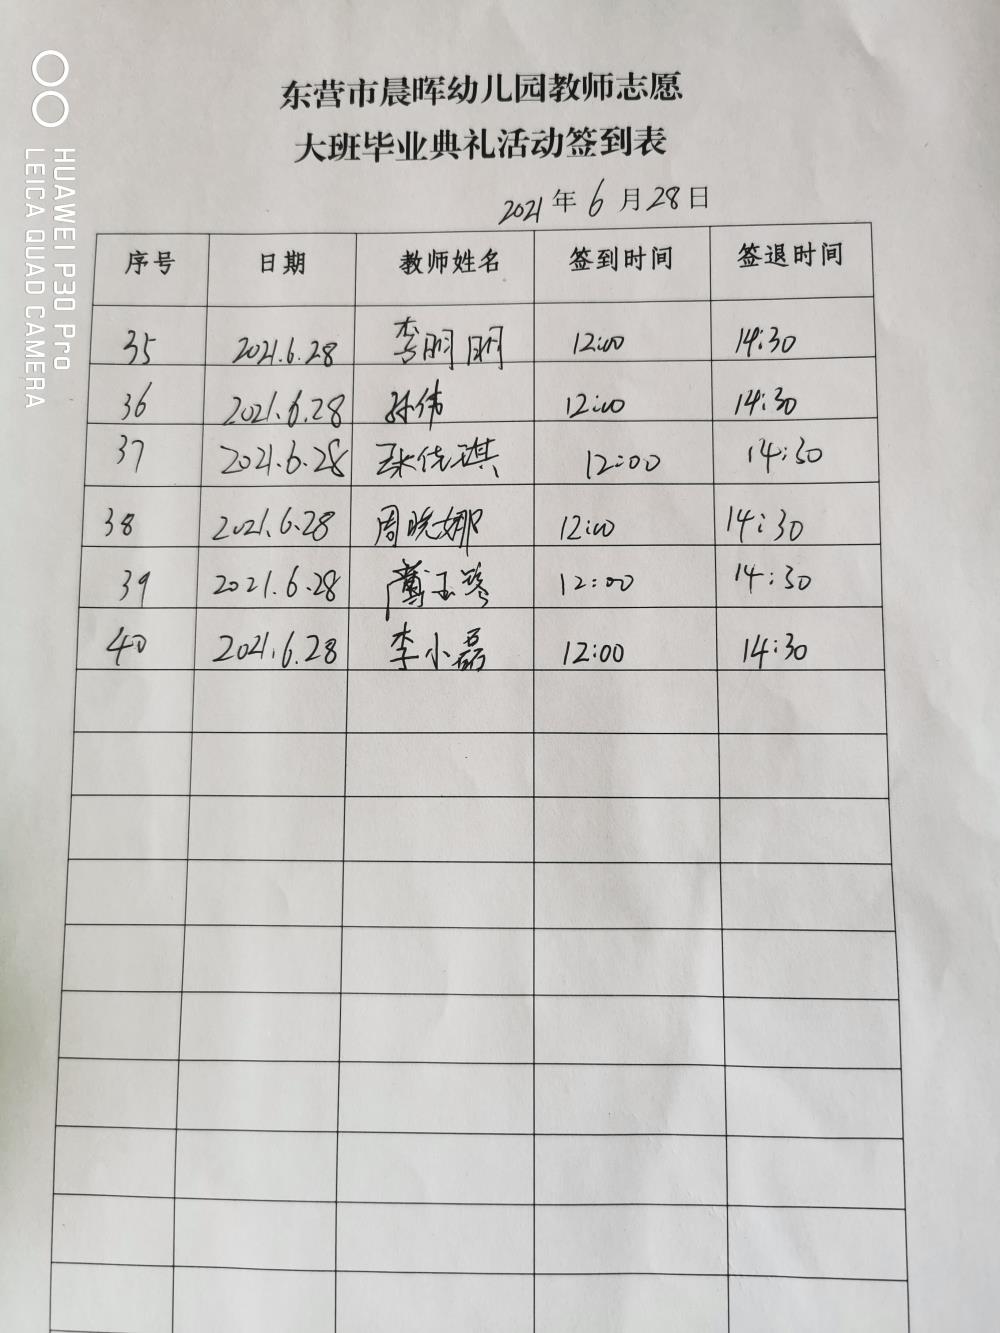 东营市晨晖幼儿园教师志愿
大班毕业典礼活动签到表
2021年6月28日
序号 日期 教师姓名 签到时间 签退时间
35 2021.6.28 李明明 12:00 14:30
36 2021.6.28 孙伟 12:00 14:30
37 2021.6.28 12:00 14:30
38 2021.6.28 周晓娜 12:00 14:30
39 2021.6.28 12:00 14:30
40 2021.6.28 李小磊 12:00 14:30
HUAWEI P30 Pro
LEICA QUAD CAMERA